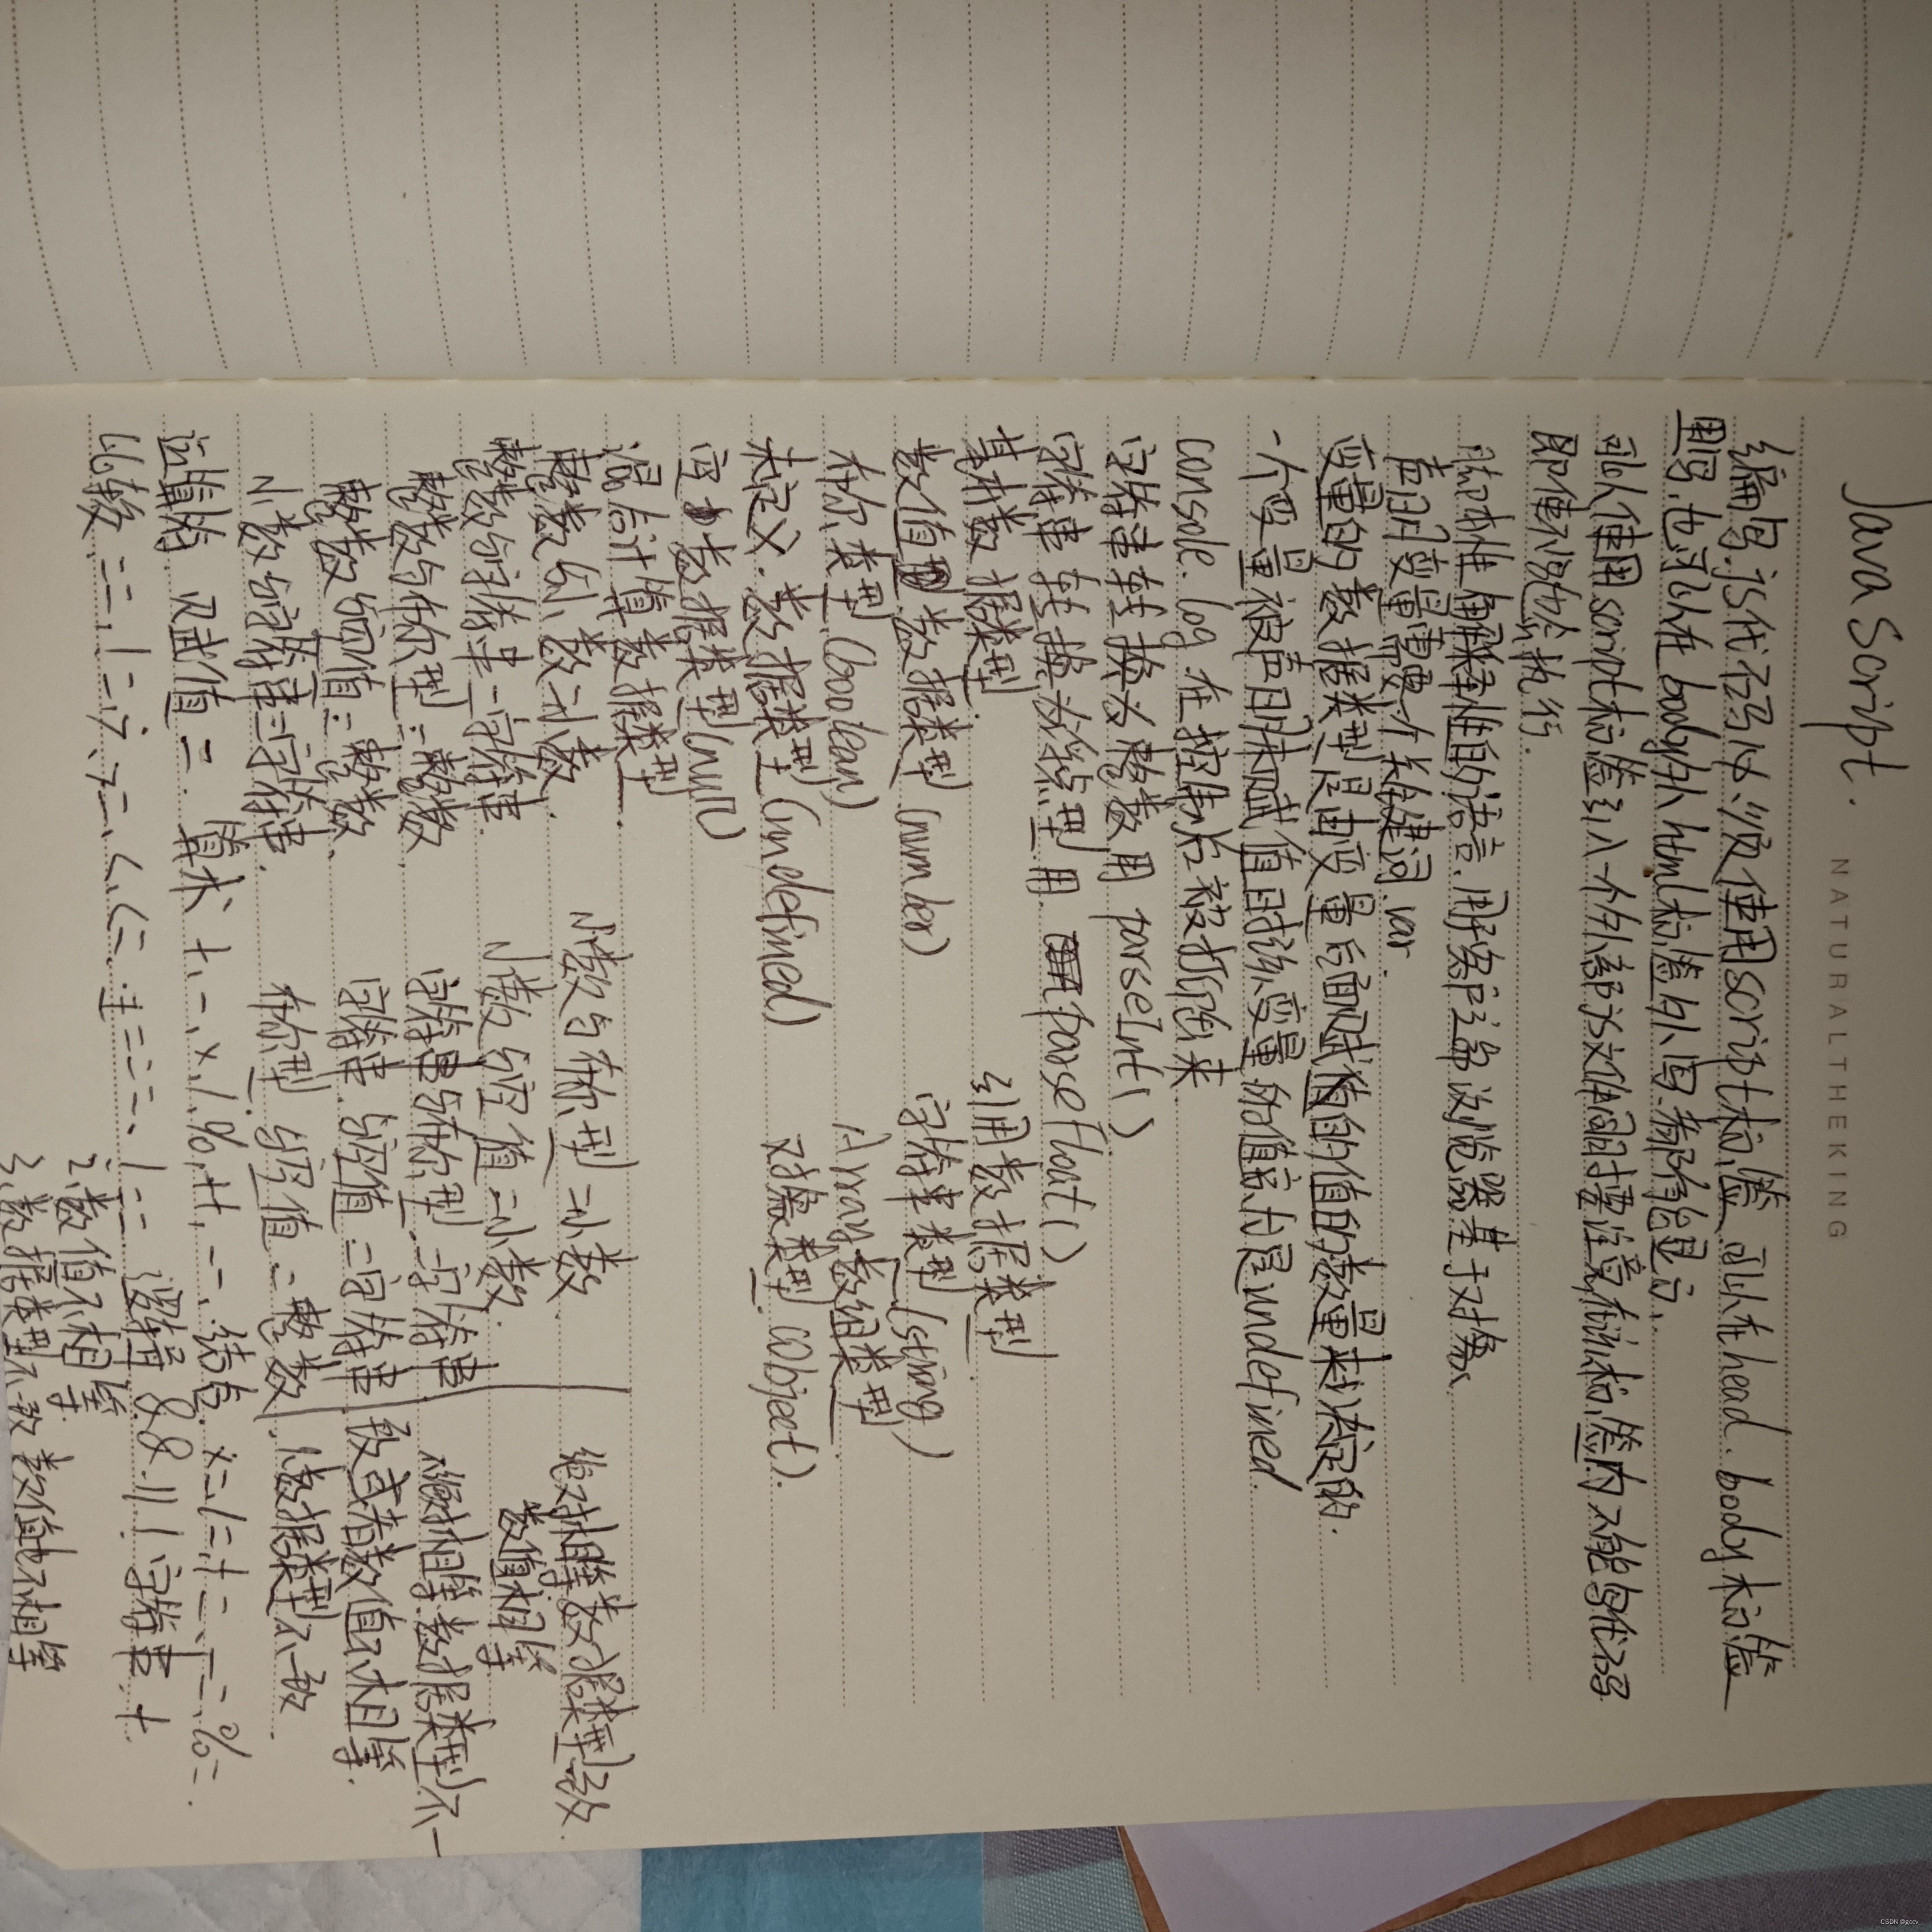 JavaScript.
NATURALTHEKING
编写js代码必须使用script标签 可以在head. body标签
里写.也可以在body外html标签外写.都能显示.
可以使用script标签引入一个外部js文件同时要注意在标签内不能写代码
即使写也不执行.
脚本性解释性的语言.用于客户端浏览器基于对象.
声明变量需要一个关键词 var.
变量的数据类型是由变量后面赋值的值的数量来决定的.
一个变量被声明未赋值时该变量的值定为是undefined.
console.log 在控制台被打印出来
字符串转换为整数用 parseInt()
字符串转换为浮点型用 parsefloat()
基本数据类型. 引用数据类型.
数值型数据类型 (number) 字符串类型 (string)
布尔类型 (boolean) Array数组类型
未定义.数据类型 (undefined) 对象类型 (object).
空数据类型 (null)
混合计算数据类型.
整数与小数=小数. 小数与布尔型=小数. 绝对相等数据类型一致.
整数与字符串=字符串. 小数与空值=小数. 数值相等
整数与布尔型=整数. 字符串与布尔型=字符串 不绝对相等数据类型不一
整数与空值=整数. 字符串与空值=字符串 致或者数值不相等.
小数与字符串=字符串. 布尔型与空值=整数. 1.数据类型不一致.
运算符 赋值= 算术 +、-、×、/、%、++、--、结合 ×= /= += -= %=.
比较 ==、!=、>、>=、<、<=、===、!== 逻辑 && || ! 字符串 +
2.数值不相等
3.数据类型不一致 数值也不相等
CSDN @gccv_